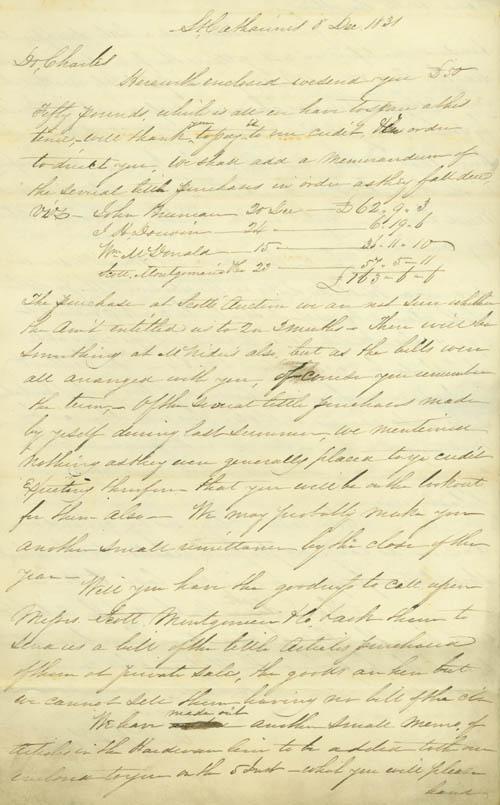 St Catharines 8 Dec 1831
Dr. Charles
Herewith enclosed we send you £50
Fifty pounds, which is all we have to spare at this
time, will thank you to pay to our credit, In order
to direct you, we shall add a Memorandum of
the several little purchases in order as they fall due,
Viz - John 20 Dec - £62 - 9 - 3
J H 24 - 6 - 19 - 6
Wm McDonald - 15 - 11 - 10
Scott, Montgomerie & Co 23 - 57 - 5 - 11
£163 - 6 - 6
The purchase at Scotts Auction we are not sure whether
the Am't entitled us to 2 or 3 months - There will be
Something at also, but as the bills were
all arranged with you, of course you remember
the term, - Of the Several little purchases made
by y'self during last Summer, we mentioned
Nothing as they were generally placed to yr credit
Expecting therefore that you will be on the lookout
for them also - We may probably make you
another Small remittance by the close of the
year -
Will you have the goodness to call upon
Messrs. Scott, Montgomerie & Co & ask them to
Send us a bill of the little Articles purchased
of them at private Sale, the goods are here but
we cannot Sell them having no bill of the
We have made out another Small Memo. of
Articles in the Hardware line to be added to the one
enclosed to you on the 5 Inst - which you will please
hand